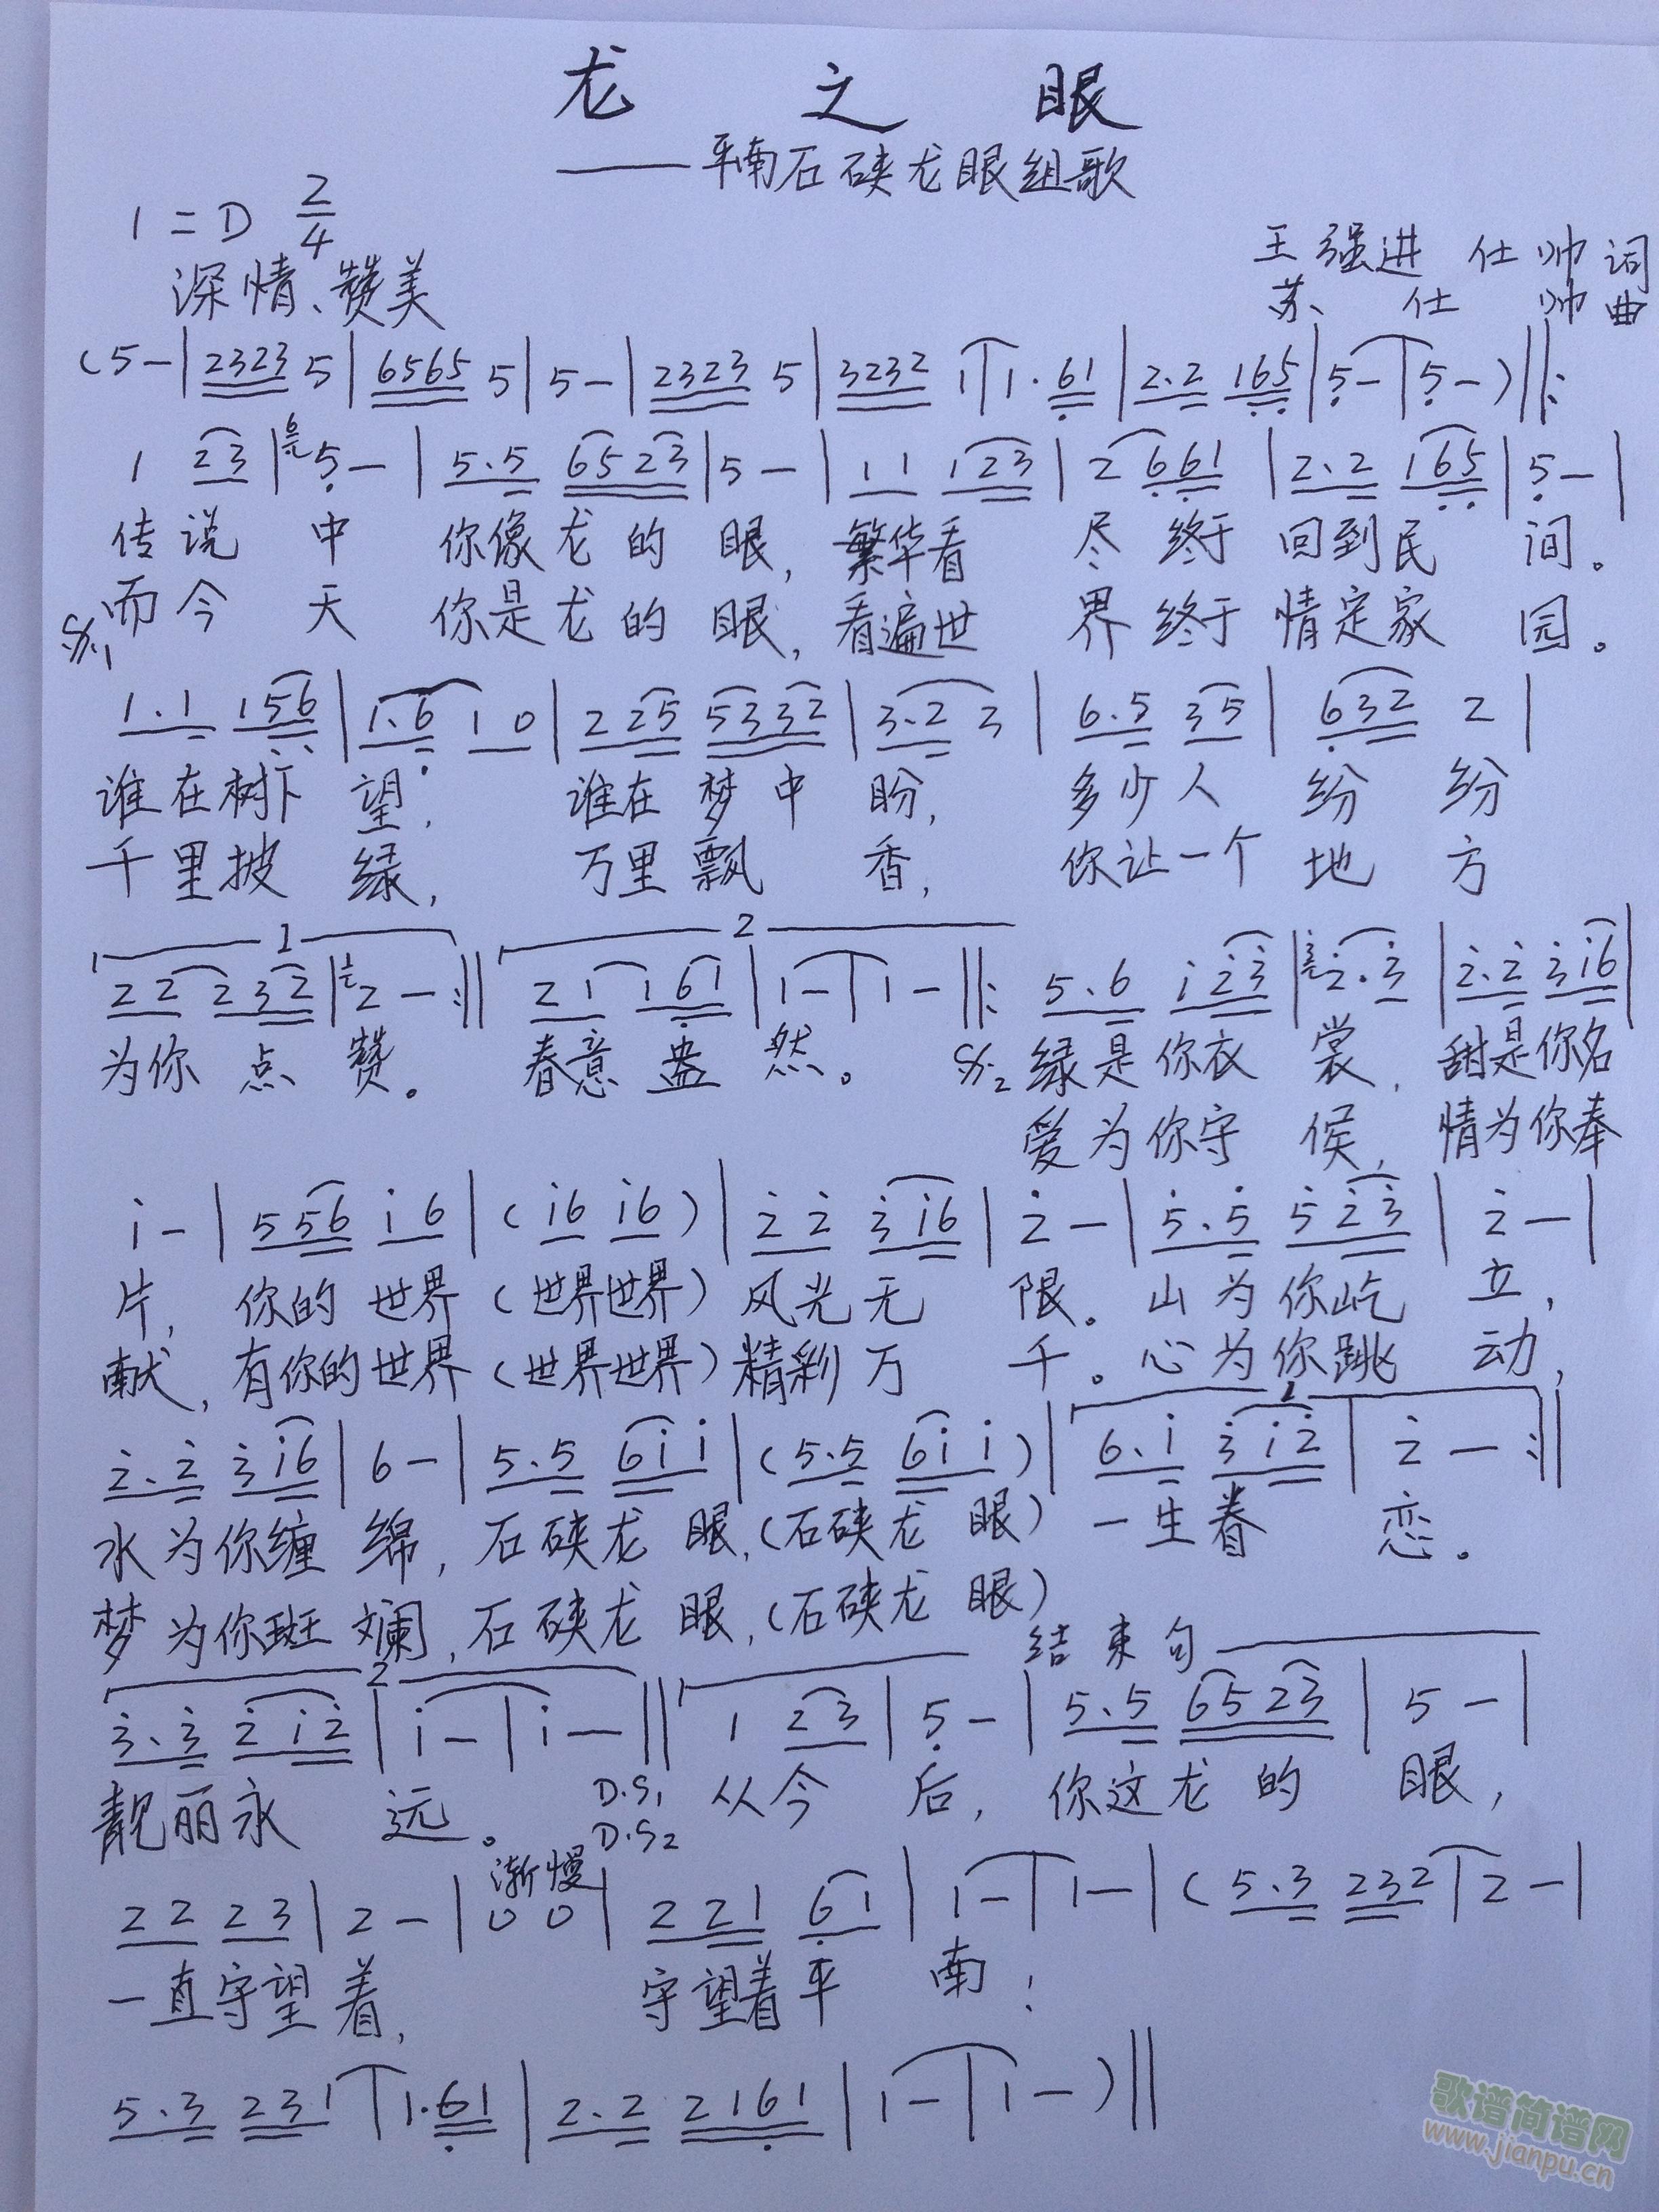 龙之眼
——平南石硖龙眼组歌
1=D 2/4
深情、赞美
王强进 仕帅词
苏仕帅曲
(5-|2323 5|6565 5|5-|2323 5|3232 1|1.61|2.2 165|5-|5-)‖:
1 23|5-|5.5 6523|5-|11 123|2 661|2.2 165|5-|
传说 中 你像龙的 眼,繁华看 尽 终于 回到民 间。
而今 天 你是龙的 眼,看遍世 界 终于 情定家 园。
1.1 156|1.6 10|2 25 5332|3.2 3|6.5 35|632 2|
谁在树下 望, 谁在 梦中 盼, 多少人 纷 纷
千里披 绿, 万里飘 香, 你让一个 地 方
1 2
22 232|2-:‖21 161|1-|1-‖:5.6 i23|2.3|2.2 3i6|
为你 点 赞。 春意 盎 然。 绿是你衣 裳,甜是你名
爱为你守 侯,情为你奉
i-|556 i6|(i6 i6)|22 3i6|2-|5.5 523|2-|
片, 你的 世界 (世界世界) 风光无 限。山为你屹 立,
献,有你的世界 (世界世界) 精彩万 千。心为你跳 动,
2.2 3i6|6-|5.5 6ii|(5.5 6ii)|6.i 3i2|2-:‖
水为你缠 绵,石硖龙 眼,(石硖龙 眼) 一生眷 恋。
梦为你斑 斓,石硖龙 眼,(石硖龙 眼)
2 结束句
3.3 2i2|i-|i-‖1 23|5-|5.5 6523|5-|
靓丽永 远。 D.S1 从今 后, 你这龙的 眼,
D.S2
渐慢
22 23|2-|00|221 61|1-|1-|(5.3 232|2-|
一直守望 着, 守望着平 南!
5.3 231|1.61|2.2 2161|1-|1-)‖
歌谱简谱网
www.jianpu.cn